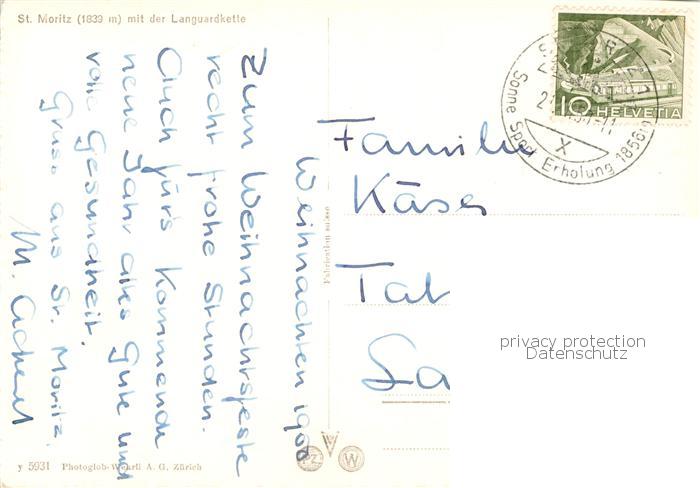 St. Moritz (1839 m) mit der Languardkette
Weihnachten 1960
Zum Weihnachtsfeste
recht frohe Stunden.
Auch für's kommende
neue Jahr alles Gute und
volle Gesundheit.
Gruss aus St. Moritz.
M.
Familie
Käser
Tal
La
HELVETIA
10
Sonne Sport Erholung 1856m
X
Fabrication suisse
privacy protection
Datenschutz
PZ
W
y 5931 Photoglob-Wehrli A. G. Zürich